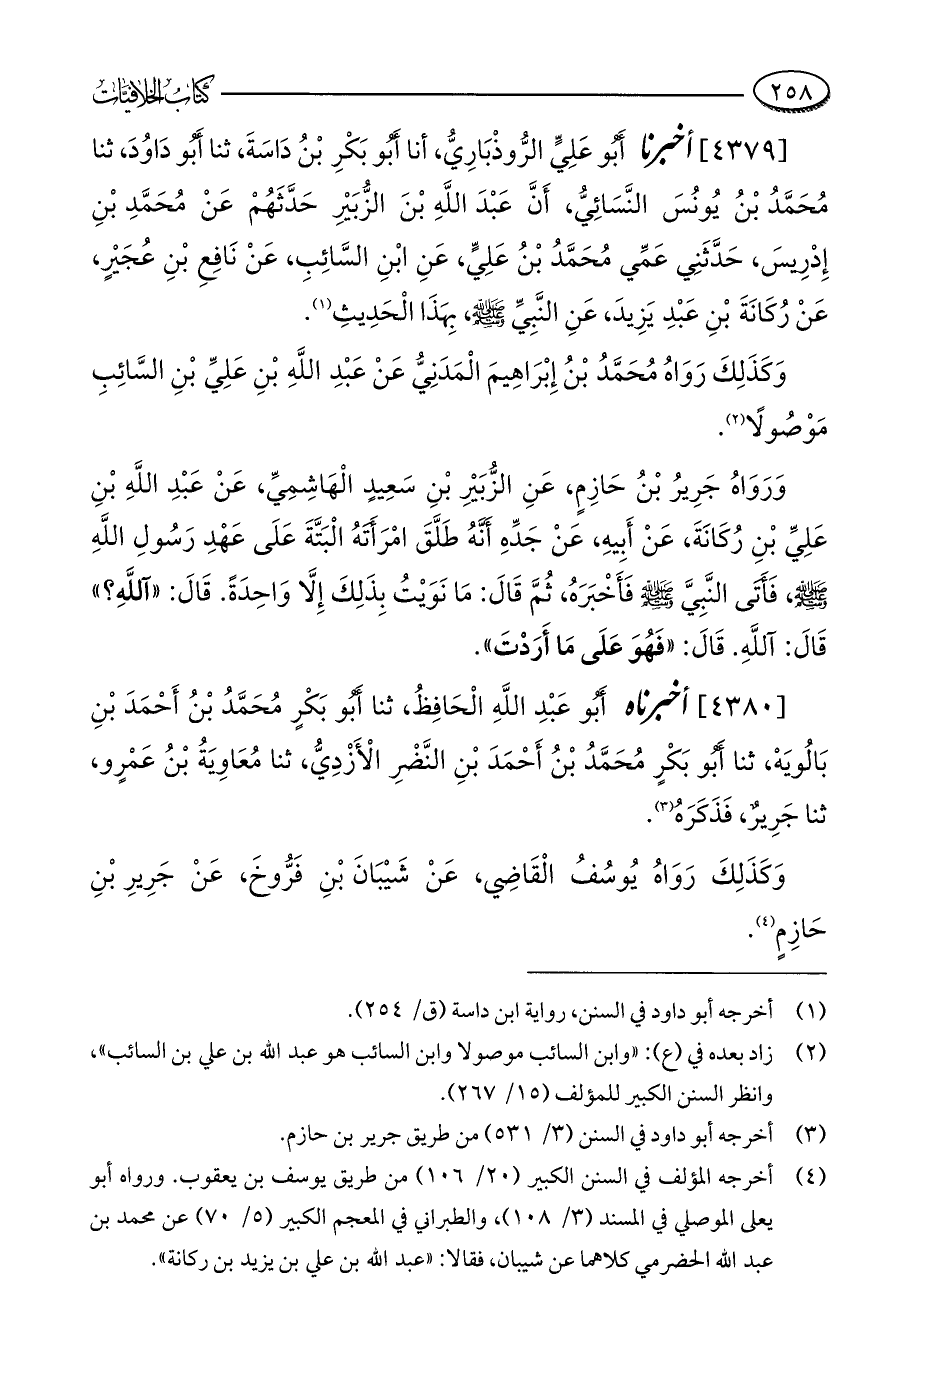 ٢٥٨ كتاب الخلافيات
[٤٣٧٩] أخبرنا أَبُو عَلِيٍّ الرُّوذْبَارِيُّ، أنا أَبُو بَكْرِ بْنُ دَاسَةَ، ثنا أَبُو دَاوُدَ، ثنا
مُحَمَّدُ بْنُ يُونُسَ النَّسَائِيُّ، أَنَّ عَبْدَ اللَّهِ بْنَ الزُّبَيْرِ حَدَّثَهُمْ عَنْ مُحَمَّدِ بْنِ
إِدْرِيسَ، حَدَّثَنِي عَمِّي مُحَمَّدُ بْنُ عَلِيٍّ، عَنِ ابْنِ السَّائِبِ، عَنْ نَافِعِ بْنِ عُجَيْرٍ،
عَنْ رُكَانَةَ بْنِ عَبْدِ يَزِيدَ، عَنِ النَّبِيِّ ﷺ، بِهَذَا الْحَدِيثِ(١).
وَكَذَلِكَ رَوَاهُ مُحَمَّدُ بْنُ إِبْرَاهِيمَ الْمَدَنِيُّ عَنْ عَبْدِ اللَّهِ بْنِ عَلِيِّ بْنِ السَّائِبِ
مَوْصُولًا(٢).
وَرَوَاهُ جَرِيرُ بْنُ حَازِمٍ، عَنِ الزُّبَيْرِ بْنِ سَعِيدٍ الْهَاشِمِيِّ، عَنْ عَبْدِ اللَّهِ بْنِ
عَلِيِّ بْنِ رُكَانَةَ، عَنْ أَبِيهِ، عَنْ جَدِّهِ أَنَّهُ طَلَّقَ امْرَأَتَهُ الْبَتَّةَ عَلَى عَهْدِ رَسُولِ اللَّهِ
ﷺ، فَأَتَى النَّبِيَّ ﷺ فَأَخْبَرَهُ، ثُمَّ قَالَ: مَا نَوَيْتُ بِذَلِكَ إِلَّا وَاحِدَةً. قَالَ: «آللَّهِ؟»
قَالَ: آللَّهِ. قَالَ: «فَهُوَ عَلَى مَا أَرَدْتَ».
[٤٣٨٠] أخبرناه أَبُو عَبْدِ اللَّهِ الْحَافِظُ، ثنا أَبُو بَكْرٍ مُحَمَّدُ بْنُ أَحْمَدَ بْنِ
بَالُويَهْ، ثنا أَبُو بَكْرٍ مُحَمَّدُ بْنُ أَحْمَدَ بْنِ النَّضْرِ الْأَزْدِيُّ، ثنا مُعَاوِيَةُ بْنُ عَمْرٍو،
ثنا جَرِيرٌ، فَذَكَرَهُ(٣).
وَكَذَلِكَ رَوَاهُ يُوسُفُ الْقَاضِي، عَنْ شَيْبَانَ بْنِ فَرُّوخَ، عَنْ جَرِيرِ بْنِ
حَازِمٍ(٤).
(١) أخرجه أبو داود في السنن، رواية ابن داسة (ق/ ٢٥٤).
(٢) زاد بعده في (ع): «وابن السائب موصولا وابن السائب هو عبد الله بن علي بن السائب»،
وانظر السنن الكبير للمؤلف (١٥/ ٢٦٧).
(٣) أخرجه أبو داود في السنن (٣/ ٥٣١) من طريق جرير بن حازم.
(٤) أخرجه المؤلف في السنن الكبير (٢٠/ ١٠٦) من طريق يوسف بن يعقوب. ورواه أبو
يعلى الموصلي في المسند (٣/ ١٠٨)، والطبراني في المعجم الكبير (٥/ ٧٠) عن محمد بن
عبد الله الحضرمي كلاهما عن شيبان، فقالا: «عبد الله بن علي بن يزيد بن ركانة».